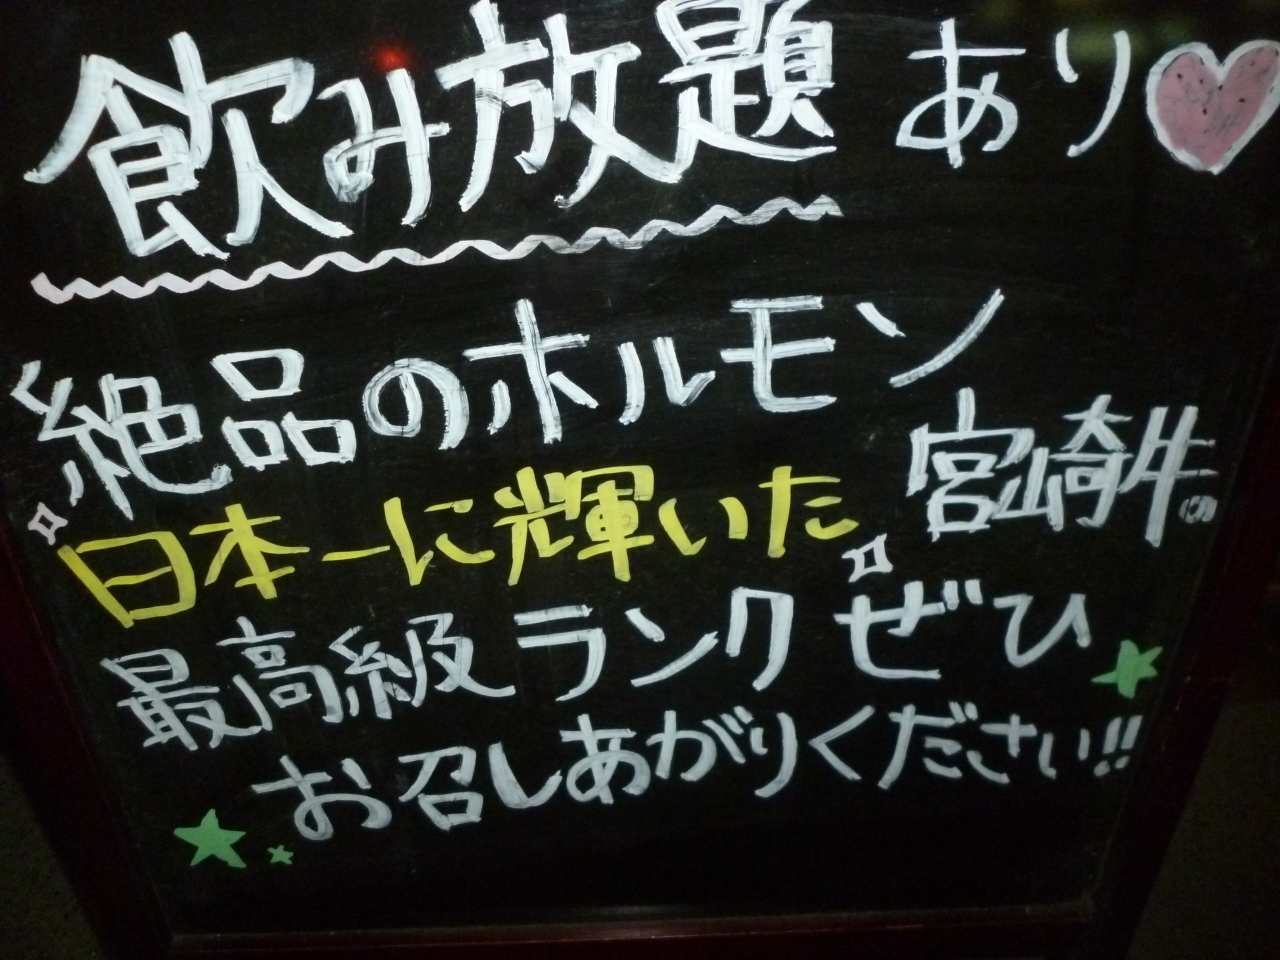 飲み放題 あり
絶品のホルモン
日本一に輝いた 宮崎牛。
最高級ランク ぜひ
お召しあがりください!!